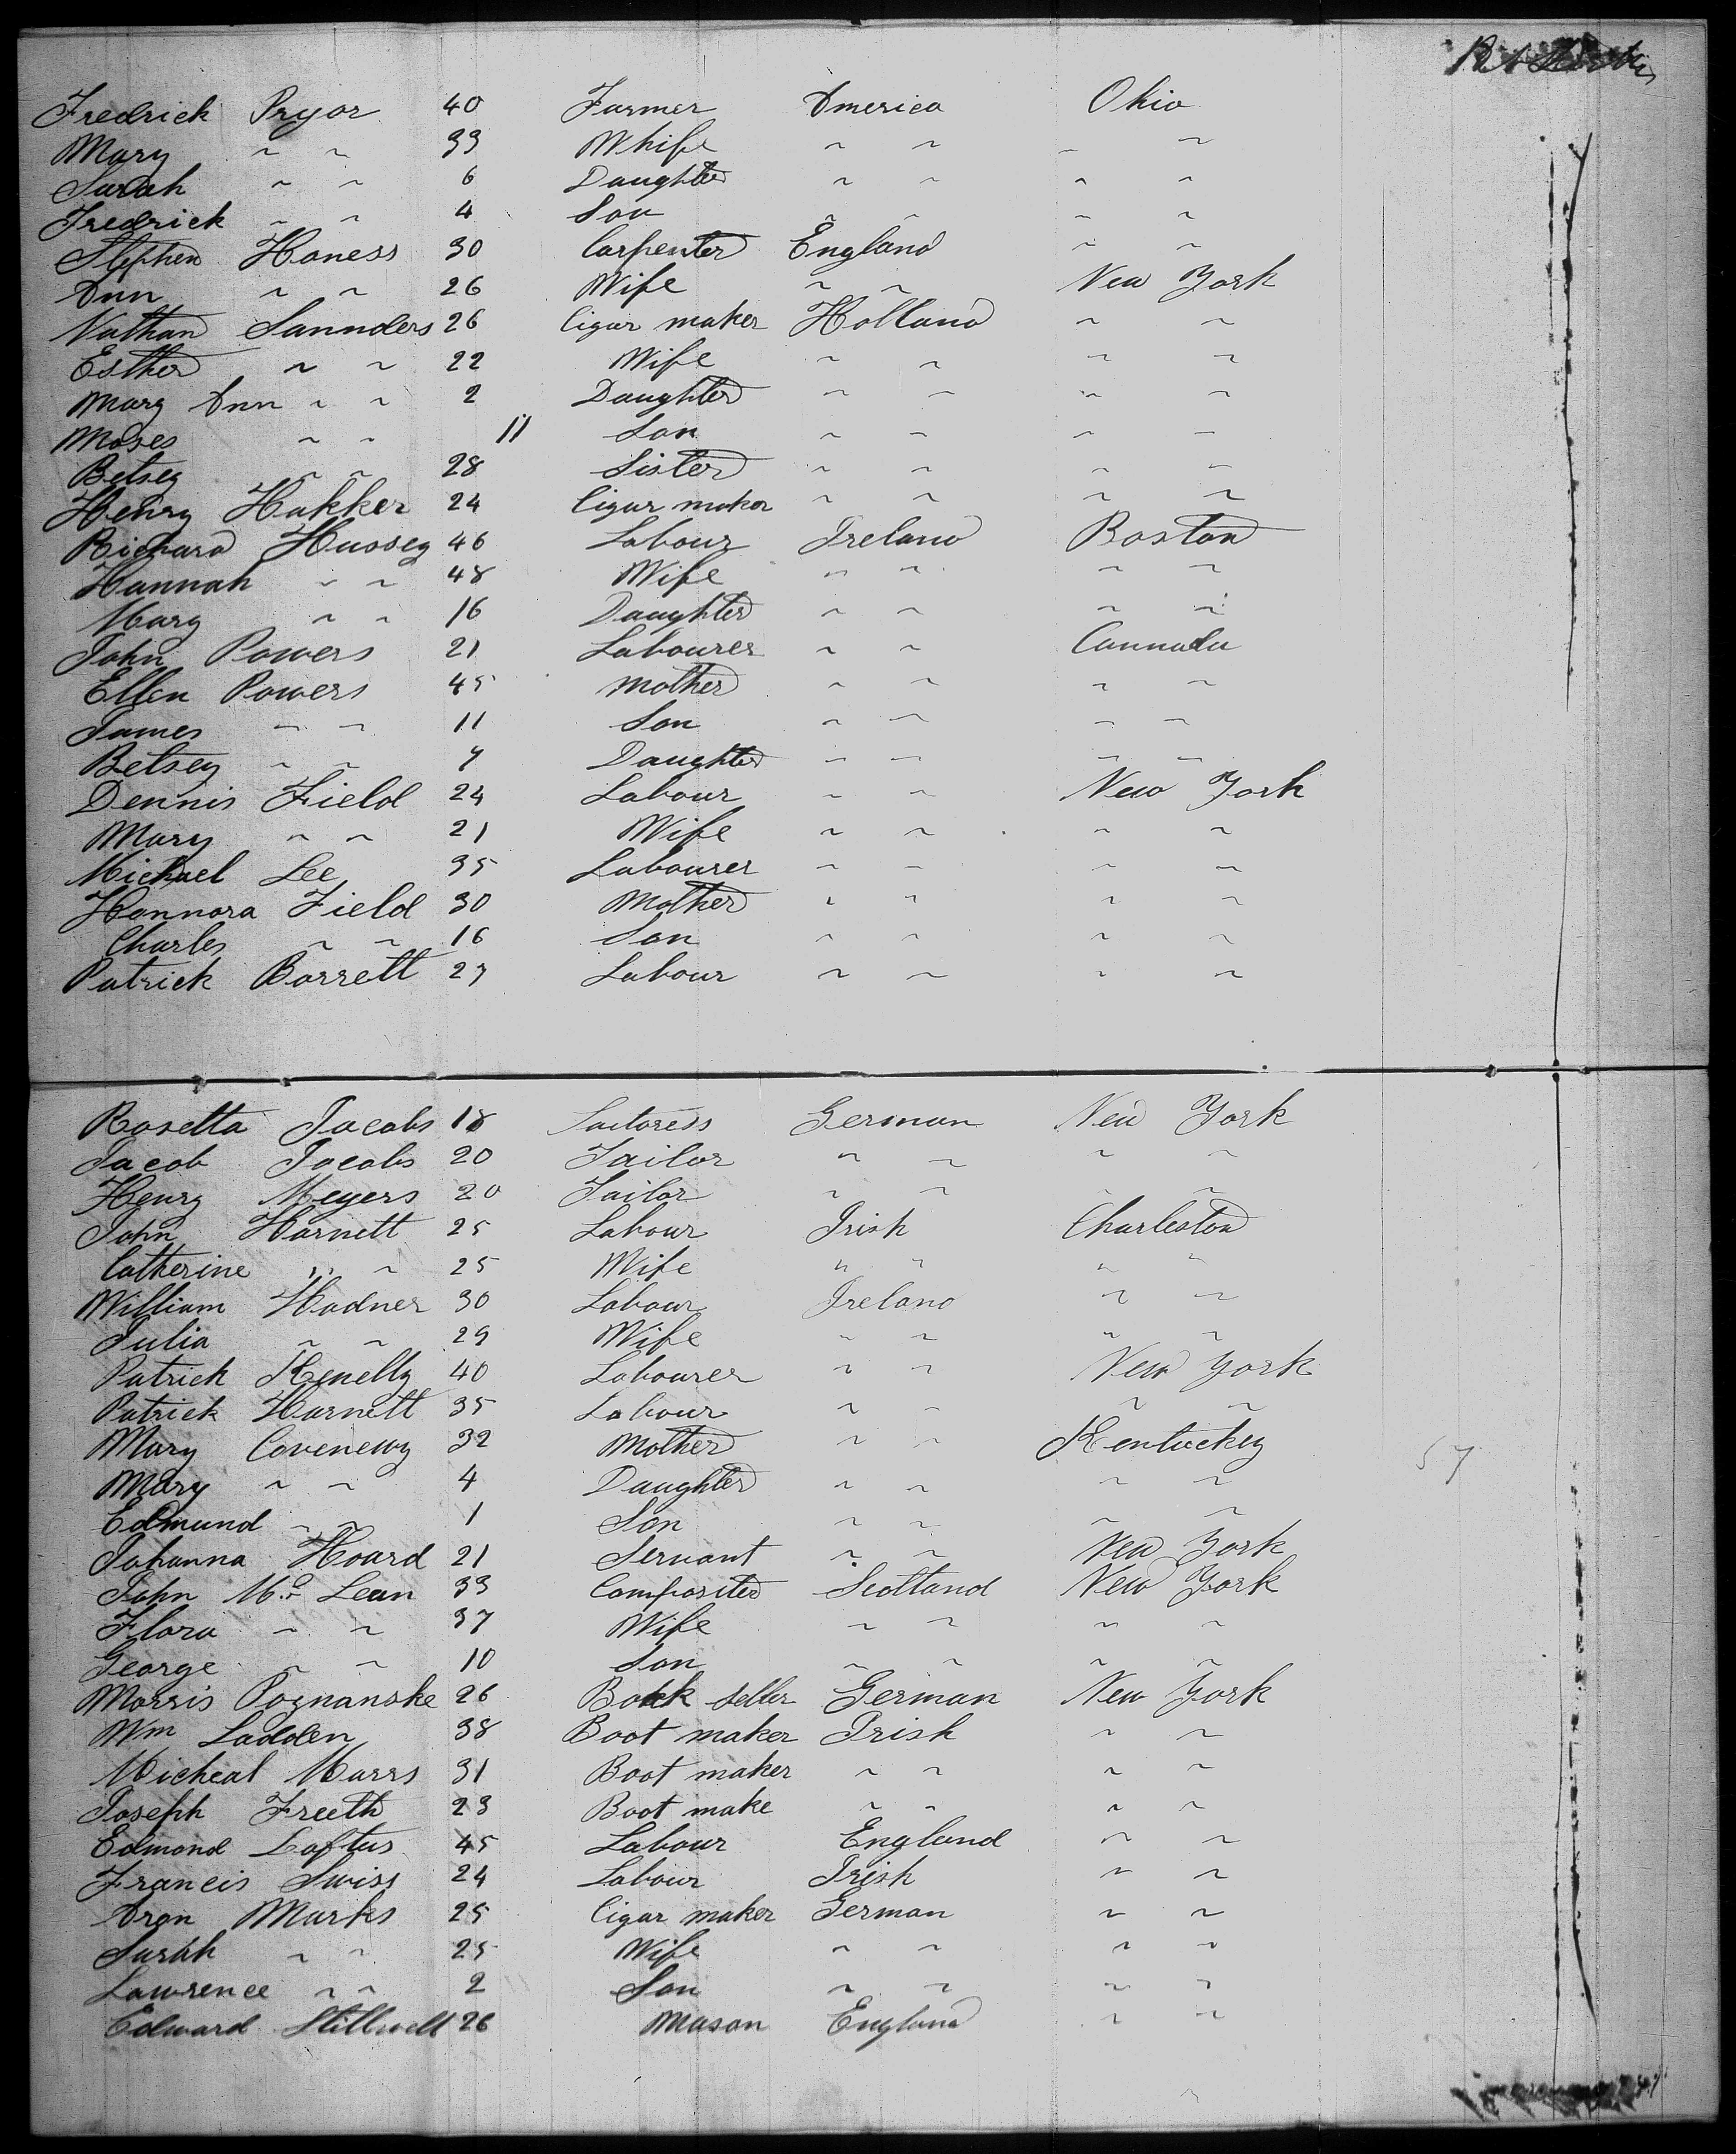 Fredrick Pryor 40 Farmer America Ohio
Mary ~ ~ 33 Whife ~ ~ ~ ~
Sarah ~ ~ 6 Daughter ~ ~ ~ ~
Fredrick ~ ~ 4 Son ~ ~ ~ ~
Stephen Haness 30 Carpenter England ~ ~
Ann ~ ~ 26 Wife ~ ~ New York
Nathan Saunders 26 Cigar maker Holland ~ ~
Esther ~ ~ 22 Wife ~ ~ ~ ~
Mary Ann ~ ~ 2 Daughter ~ ~ ~ ~
Moses ~ ~ 11 Son ~ ~ ~ ~
Betsey ~ ~ 28 Sister ~ ~ ~ ~
Henry Hakker 24 Cigar maker ~ ~ ~ ~
Richard Hussey 46 Labour Ireland Boston
Hannah ~ ~ 48 Wife ~ ~ ~ ~
Mary ~ ~ 16 Daughter ~ ~ ~ ~
John Powers 21 Labourer ~ ~ Cannada
Ellen Powers 45 Mother ~ ~ ~ ~
James ~ ~ 11 Son ~ ~ ~ ~
Betsey ~ ~ 7 Daughter ~ ~ ~ ~
Dennis Field 24 Labour ~ ~ New York
Mary ~ ~ 21 Wife ~ ~ ~ ~
Michael Lee 35 Labourer ~ ~ ~ ~
Honnora Field 30 Mother ~ ~ ~ ~
Charles ~ ~ 16 Son ~ ~ ~ ~
Patrick Barrett 23 Labour ~ ~ ~ ~
Rosetta Jacobs 18 German New York
Jacob Jacobs 20 Tailor ~ ~ ~ ~
Henry Meyers 20 Tailor ~ ~ ~ ~
John Harnett 25 Labour Irish Charleston
Catherine ~ ~ 25 Wife ~ ~ ~ ~
William Hadner 30 Labour Ireland ~ ~
Julia ~ ~ 29 Wife ~ ~ ~ ~
Patrick Kenelly 40 Labourer ~ ~ New York
Patrick Harnett 35 Labour ~ ~ ~ ~
Mary Coveneuy 32 Mother ~ ~ Kentuckey
57
Mary ~ ~ 4 Daughter ~ ~ ~ ~
Edmund ~ ~ 1 Son ~ ~ ~ ~
Johanna Hoard 21 Servant ~ ~ New York
John Mc Lean 33 Composited Scotland New York
Flora ~ ~ 37 Wife ~ ~ ~ ~
George ~ ~ 10 Son ~ ~ ~ ~
Morris Poznanske 26 Book seller German New York
Wm Ladden 38 Boot maker Irish ~ ~
Micheal Marrs 31 Boot maker ~ ~ ~ ~
Joseph Freeth 23 Boot make ~ ~ ~ ~
Edmond Loftus 45 Labour England ~ ~
Francis Swiss 24 Labour Irish ~ ~
Aron Marks 25 Cigar maker German ~ ~
Sarah ~ ~ 25 Wife ~ ~ ~ ~
Lawrence ~ ~ 2 Son ~ ~ ~ ~
Edward Stillwell 26 Mason England ~ ~